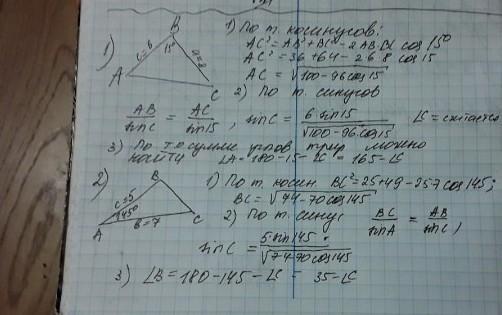 1) B
c=6 15° a=8
A C
1) По т. косинусов:
AC²=AB²+BC²-2AB·BC cos 15°
AC²=36+64-2·6·8 cos 15
AC = √100-96cos15
2) По т. синусов
AB/sinC = AC/sin15, sinC = 6 sin15/√100-96cos15 ∠C=считается
3) По т.о сумме углов треуг можно
найти ∠A=180-15-∠C=165-∠C
2) B
c=5
145°
A b=7 C
1) По т. косин BC²=25+49-2·5·7cos145;
BC=√44-70cos145
2) По т. синус BC/sinA = AB/sinC,
sinC = 5sin145/√74-70cos145
3) ∠B=180-145-∠C= 35-∠C